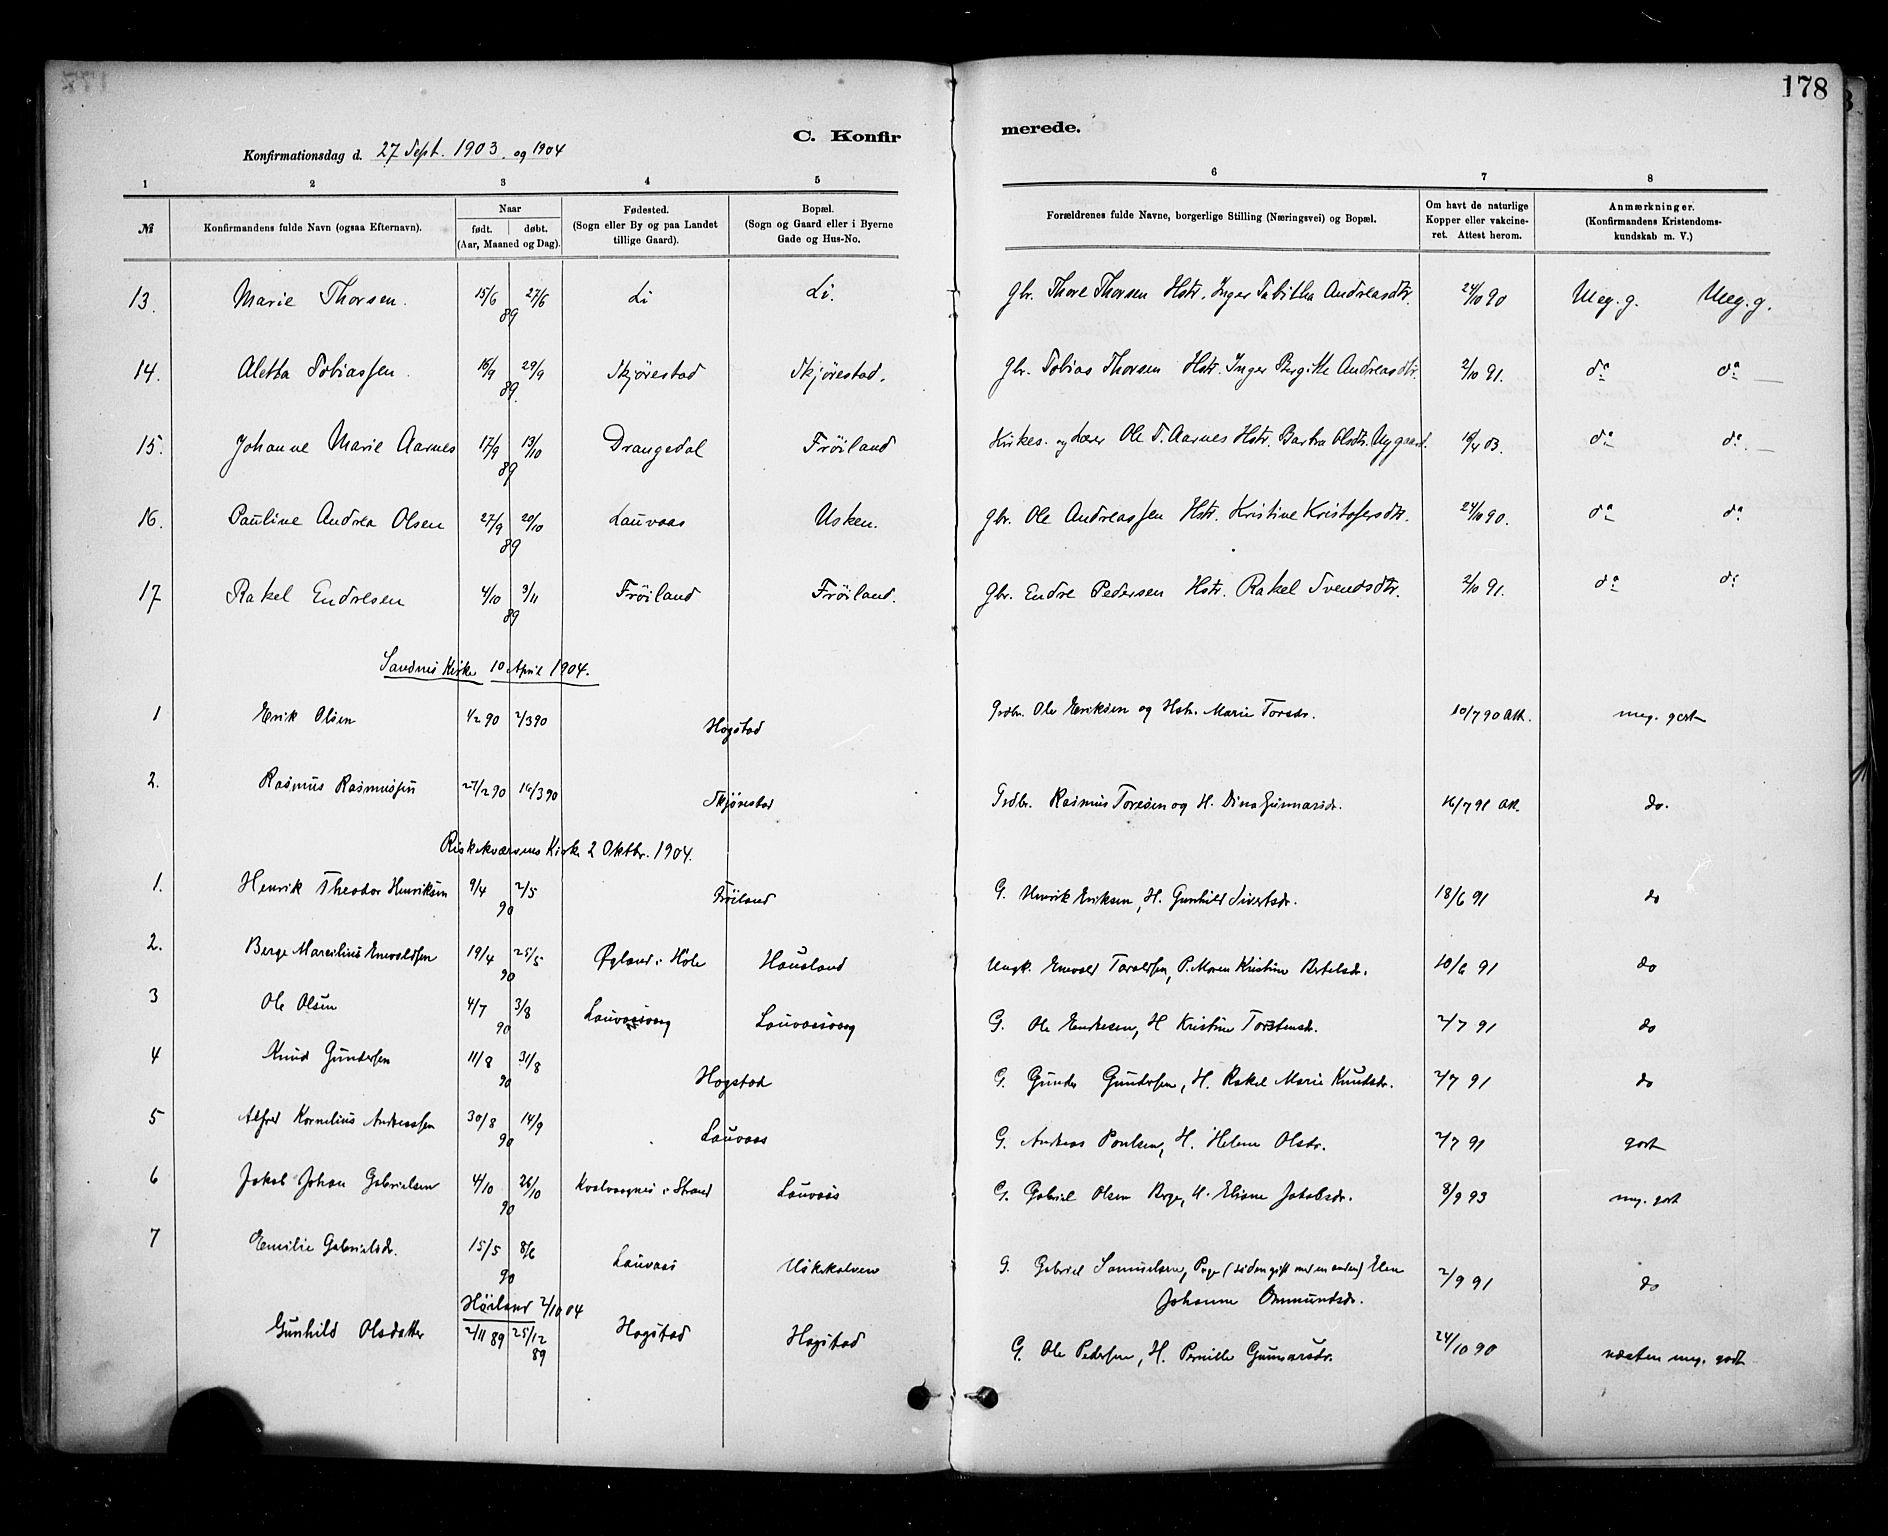 178
C. Konfirmerede.
Konfirmationsdag d. 27 Sept. 1903. og 1904
1 2 3 4 5 6 7 8
№ Konfirmandens fulde Navn (ogsaa Efternavn). Naar født. døbt. (Aar, Maaned og Dag). Fødested. (Sogn eller By og paa Landet tillige Gaard). Bopæl. (Sogn og Gaard eller i Byerne Gade og Hus-No. Forældrenes fulde Navne, borgerlige Stilling (Næringsvei) og Bopæl. Om havt de naturlige Kopper eller vakcineret. Attest herom. Anmærkninger. (Konfirmandens Kristendomskundskab m. V.)
13. Marie Thorsen. 15/6 27/6 89 Li Li. Gbr. Thore Thorsen Hstr. Inger Tabitha Andreasdtr. 24/10 90 Meg. g. Meg. g.
14. Aletta Tobiassen. 16/9 29/9 89. Skjørestad Skjørestad. Gbr. Tobias Thorsen Hstr. Inger Bergitte Andreasdtr. 2/10 91. do do
15. Johanne Marie Aarnes 17/9 13/10 89 Drangedal Frøiland Kirkes. og Lærer Ole T. Aarnes Hstr. Barbra Olsdtr. Nygaard. 16/4 03. do do
16. Pauline Andrea Olsen 27/9 20/10 89 Lauvaas Usken. Gbr. Ole Andreassen Hstr. Kristine Kristofersdtr. 24/10 90. do do
17 Rakel Endresen 4/10 3/11 89 Frøiland Frøiland. Gbr. Endre Pedersen Hstr. Rakel Svendsdtr. 2/10 91. do do
Sandnes Kirke 10 April 1904.
1 Erik Olsen 1/2 90 2/3 90 Hogstad Grdbr. Ole Eriksen og Hstr. Marie Torsdr. 10/7 90 Att. meg. godt
2. Rasmus Rasmussen 27/2 90 16/3 90 Skjørestad Grdbr. Rasmus Toresen og H. Dina Gunnarsdr. 16/7 91 Att. do.
Riskekværnens Kirke 2 Oktbr. 1904.
1. Henrik Theodor Henriksen 9/4 2/5 90 Frøiland G. Henrik Eriksen, H. Gunhild Sivertsdr. 18/6 91 do
2. Berge Marsilius Enevaldsen 19/4 25/5 90 Øgland i Høle Hausland Ungk. Enevald Taraldsen, P. Maren Kristine Bertelsdr. 10/6 91 do
3 Ole Olsen 4/7 3/8 90 Lauvaasvaag Lauvaasvaag G. Ole Endresen, H Kristine Torstensdr. 2/7 91 do
4 Knud Gundersen 11/8 31/8 90 Hogstad G. Gunder Gundersen, H. Rakel Marie Knudsdr. 2/7 91 do
5 Alfred Kornelius Andreassen 30/8 14/9 90 Lauvaas G. Andreas Poulsen, H. Helene Olsdr. 2/7 91 godt
6 Jakob Johan Gabrielsen 4/10 26/10 90 i Strand Lauvaas G. Gabriel Olsen Berge, H. Eliane Jakobsdr. 8/9 93 meg. godt
7 Emilie Gabrielsdr. 15/5 8/6 90 Lauvaas Uskekalven G. Gabriel Samuelsen, Pige (siden gift med en anden) Elen
Johanne Ommundsdr. 2/9 91 do
Høiland 2/10 04
Gunhild Olsdatter 2/11 89 25/12 89 Hogstad Hogstad G. Ole Pedersen, H. Pernille Gunnarsdr. 24/10 90 næsten meg. godt